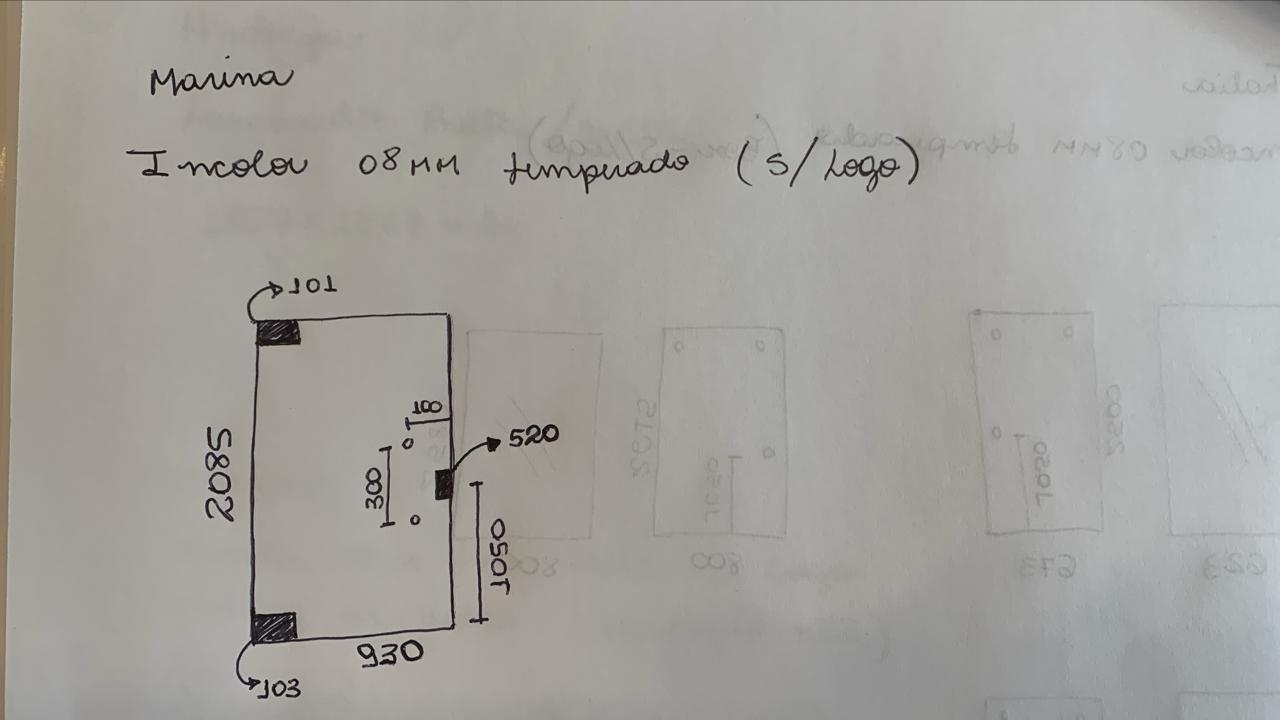 Marina
Incolor 08mm temperado (S/Logo)
101
2085
100
300
520
1050
930
103